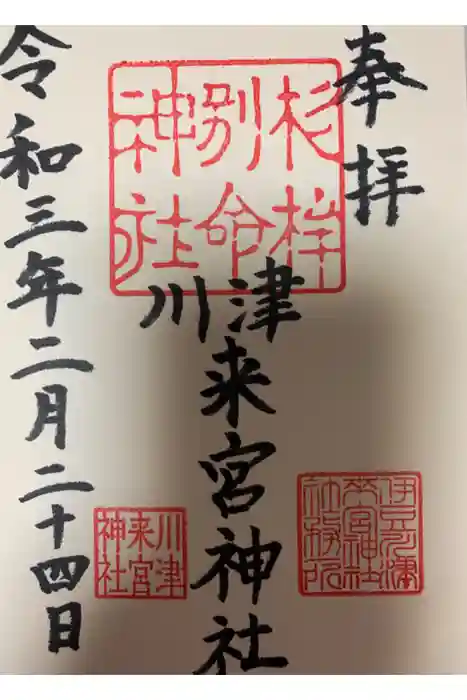 奉拝
杉桙
別命
神社
川津
来宮神社
伊豆
来宮神社
社務所
川津
来宮
神社
令和三年二月二十四日